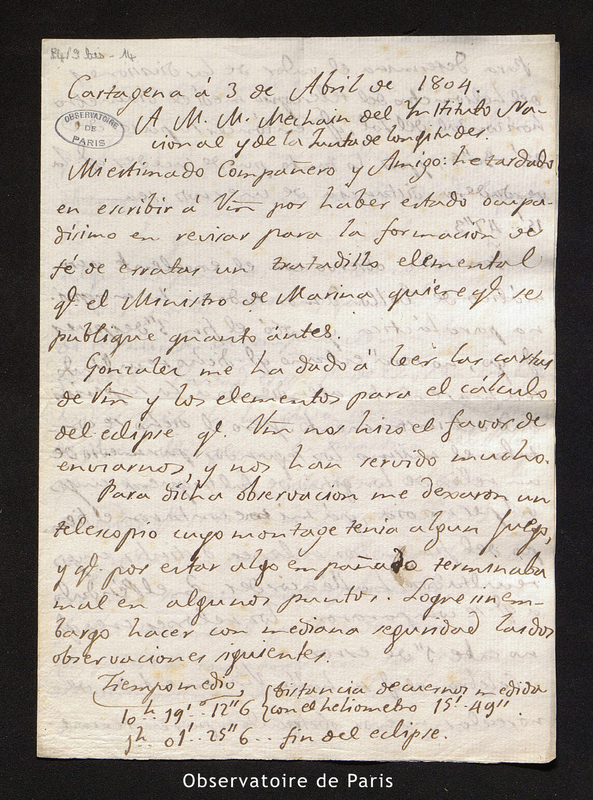 Cartagena á 3 de Abril de 1804.
OBSERVATOIRE
DE
PARIS
A M. M. Mechain del Ynstituto Na-
cional y de la Junta de longitudes.
Mi estimado Compañero y Amigo: he tardado
en escribir á Vm por haber estado ocupa-
dísimo en revisar para la formacion de
fé de erratas un tratadillo elemental
qe. el Ministro de Marina quiere qe. se
publique quanto ántes.
Gonzalez me ha dado á leer las cartas
de Vm y los elementos para el cálculo
del eclipse qe. Vm nos hizo el favor de
enviarnos, y nos han servido mucho.
Para dicha observacion me dexaron un
telescopio cuyo montage tenia algun juego,
y qe. por estar algo empañado terminaba
mal en algunos puntos. Logré sinem-
bargo hacer con mediana seguridad las dos
observaciones siguientes.
Tiempo medio, distancia de cuernos medida
10h 19' 12"6 con el heliometro 15' 49".
h 01' 25"6 .. fin del eclipse.
Observatoire de Paris